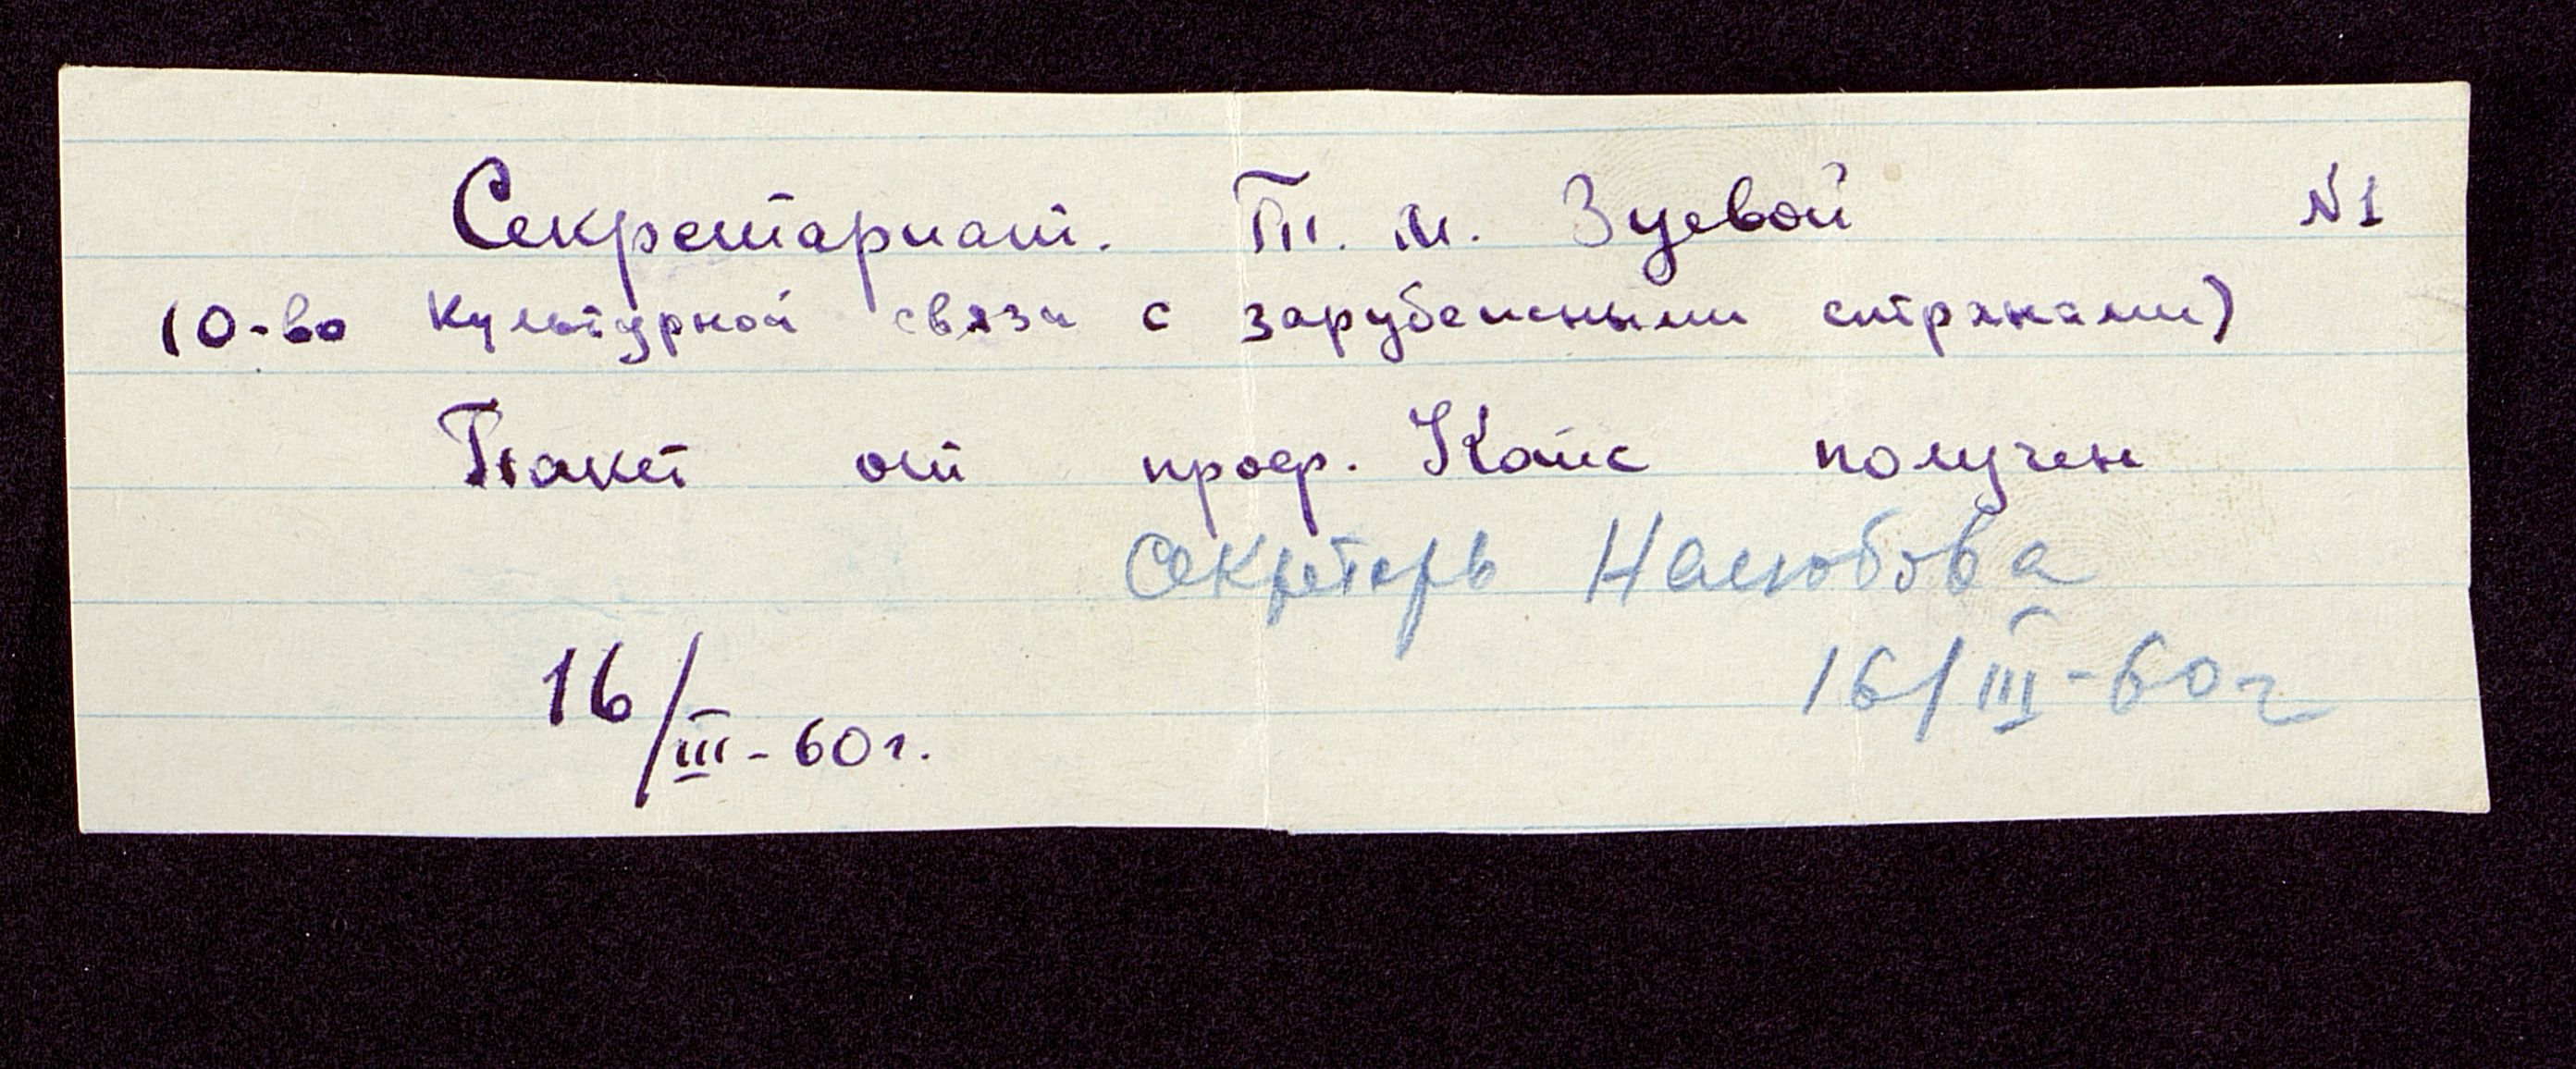 Секретариат. Т. М. Зуевой №1
(О-во культурной связи с зарубежными странами)
Пакет от проф. Кайс получен
Секретарь
16/III-60г.
16/III-60г